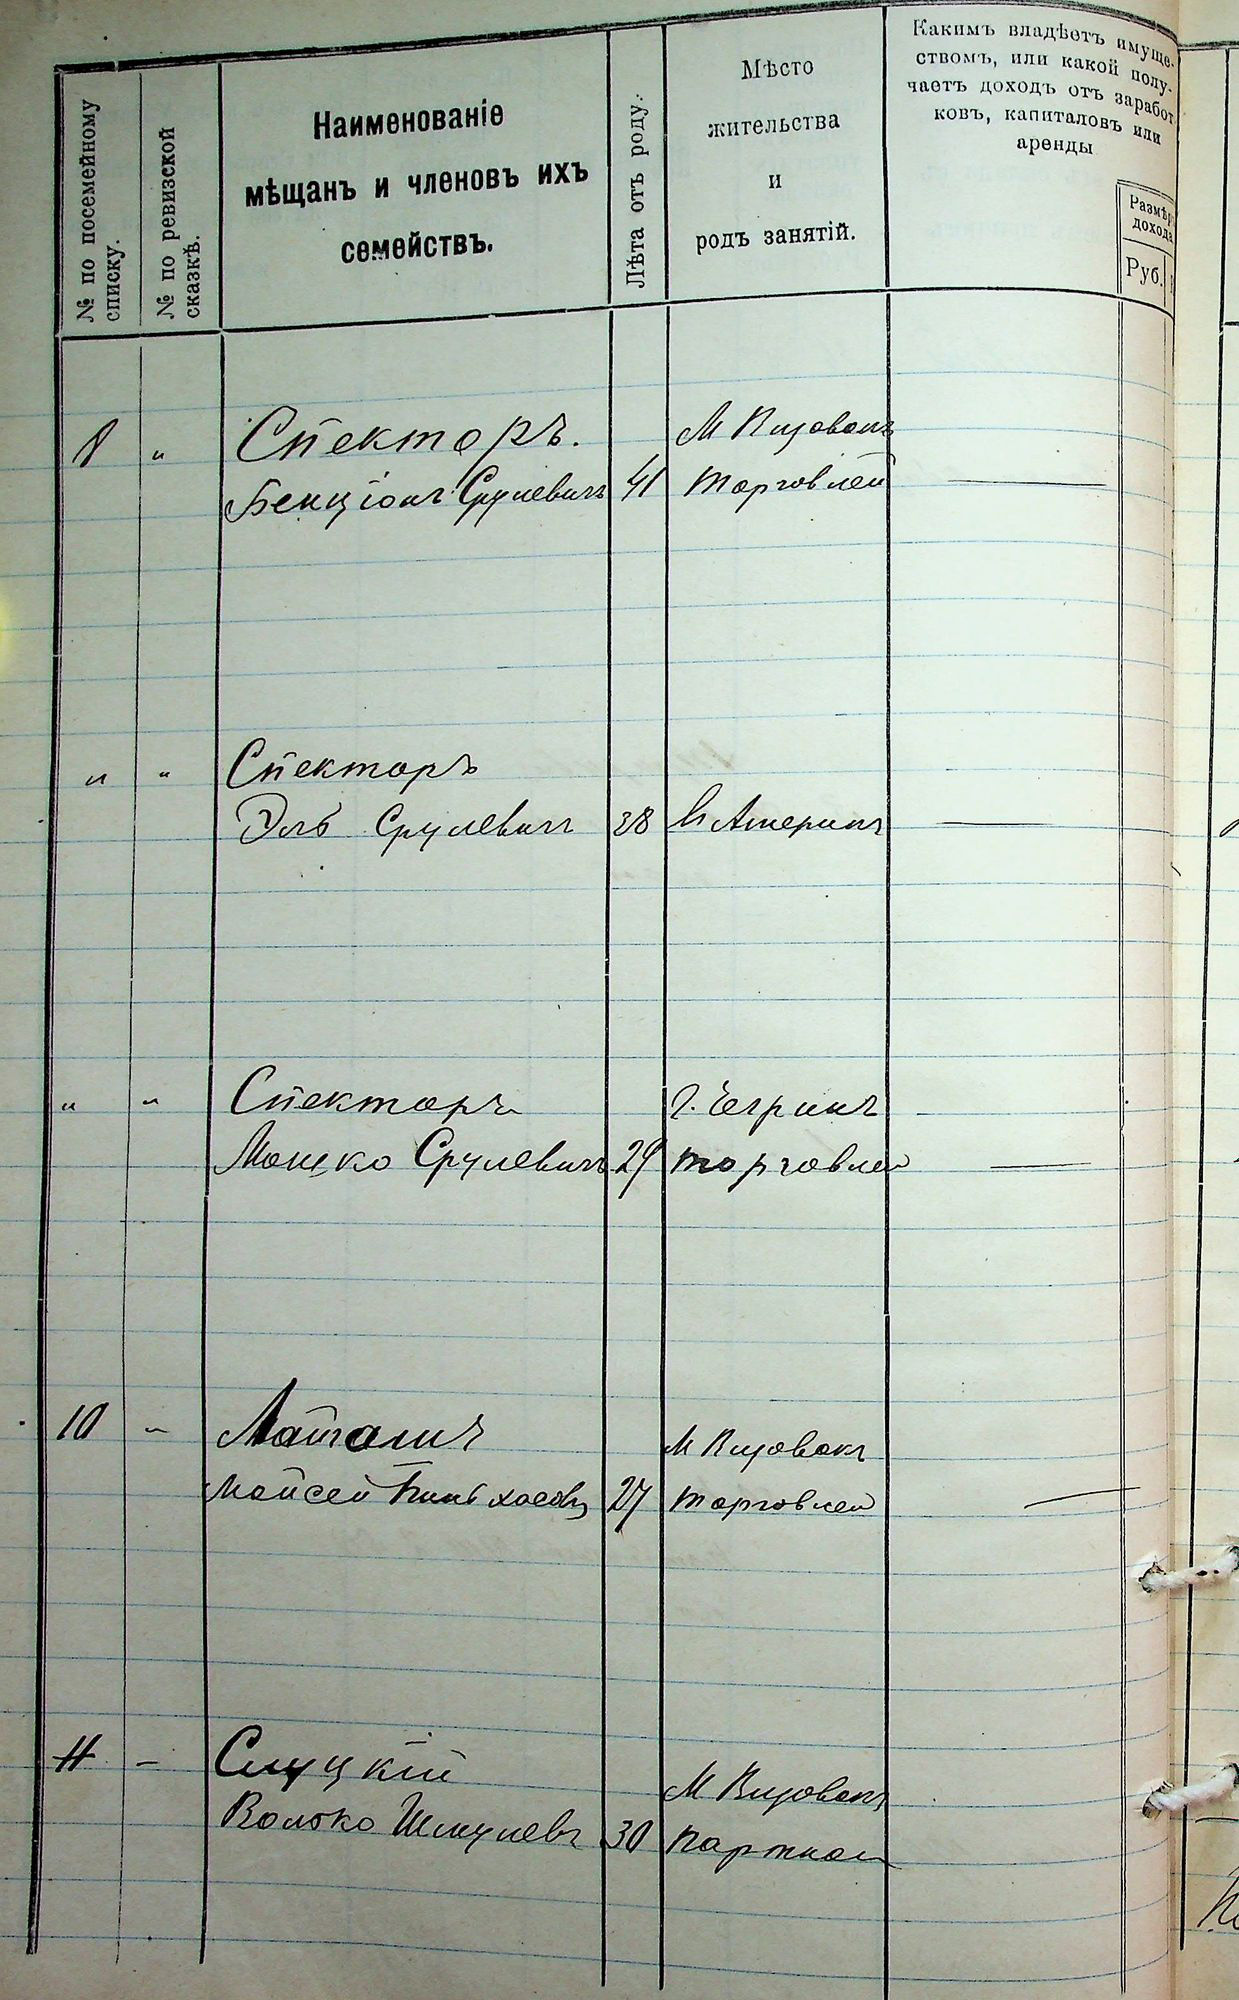 № по посемейному списку.
№ по ревизской сказкѣ.
Наименованіе
мѣщанъ и членовъ ихъ
семействъ.
Лѣта отъ роду.
Мѣсто
жительства
и
родъ занятій.
Какимъ владѣетъ имуще-
ствомъ, или какой полу-
чаетъ доходъ отъ заработ
ковъ, капиталовъ или
аренды
Размѣр
дохода
Руб.
" Спекторъ. М
Бенціонъ Срулевичъ 41 торговлей —
" " Спекторъ
Эль Срулевичъ 38 въ Америкѣ —
" " Спекторъ г. Чигринъ
Мошко Срулевичъ 29 торговлей —
10 - М
Мойсей Пиньхасовъ 27 торговлей —
11 - Слуцкій М
Волько Шмулевъ 30 портной